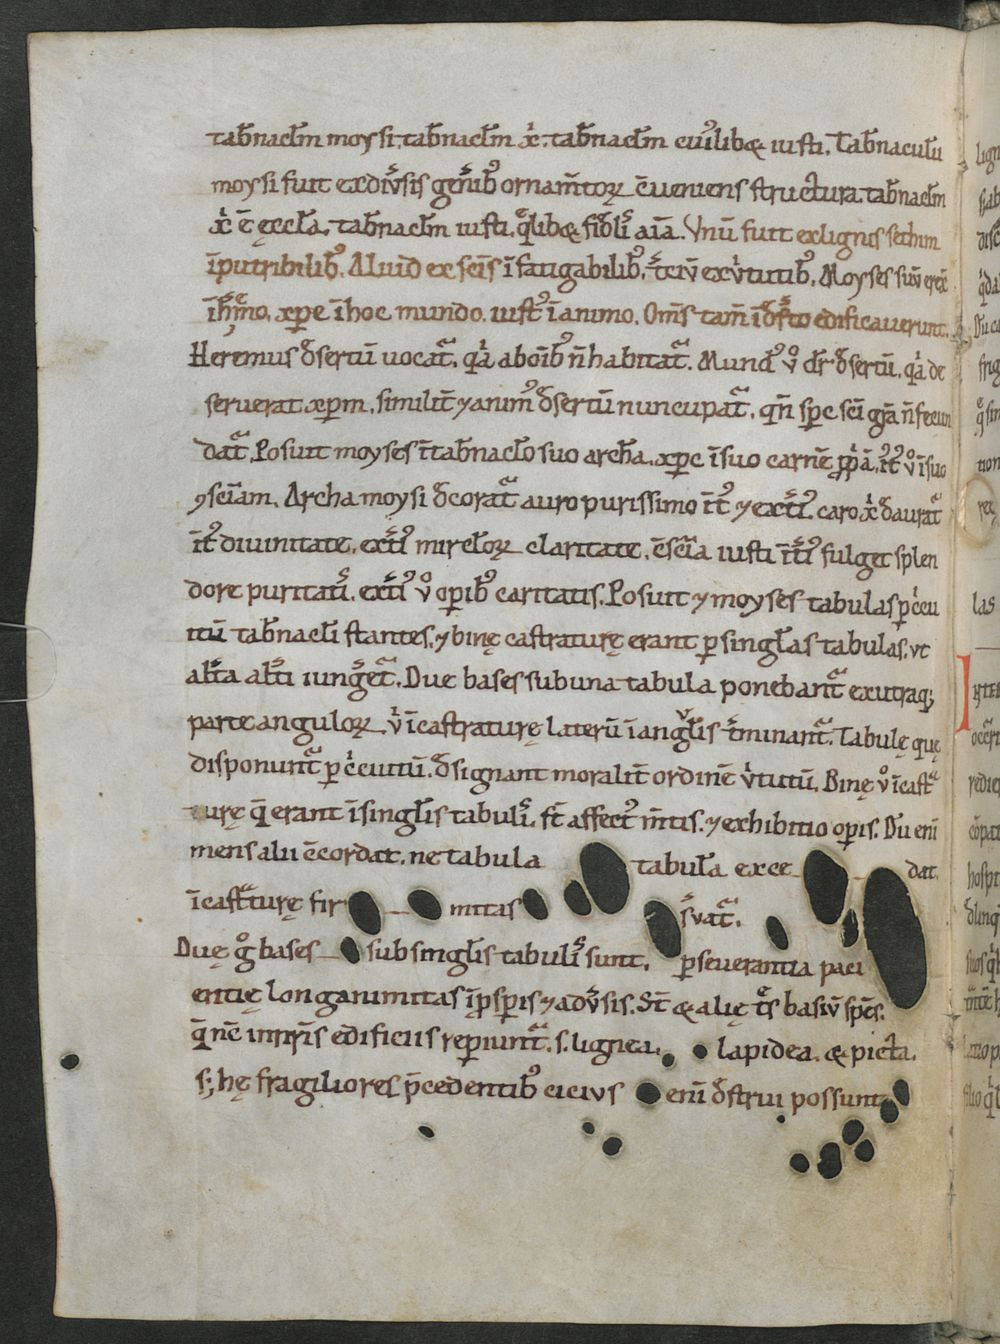 tab̄nacl̄m moysi, tab̄nacl̄m xp̄i, tab̄nacl̄m cuiꝰlib& iusti. Tab̄naculū
moysi fuit ex diu̓sis gen̓ibꝰ ornam̄toꝝ c̄ueniens structura. tab̄nacl̄m
xp̄i ē ęccl̄a. tab̄nacl̄m iusti. q̄lib& fidl̄i aīa. Vnū fuit ex lignis sethim
īputribilibꝰ. Aliud ex sc̄is īfatigabilibꝰ. t̄ciū ex uirtutibꝰ. Moyses suū erex̄
xp̄c ī hoc mundo. iustꝰ ī animo. Om̄s tam̄ edificauerunt.
Heremus d̄sertū uocat᷒. qͥa ab oīb n̄ habitat᷒. Mundꝰ uͦ dr̄ d̄sertū. qͥa de
seruerat xp̄m. similit̄ ⁊ animꝰ d̄sertū nuncupat᷒. qn̄ sp̄c sc̄i gr̄a n̄ fecun
dat᷒. Posuit moyses ī tab̄naclo suo archa. xp̄c ī suo carnē ī suo
ꝯsciam. Archa moysi d̄corat᷒ auro purissimo īt̄ ⁊ ext̓iꝰ. caro xp̄i d̄aurat᷒
īt̓ diuinitate. ext̓iꝰ miracl̄oꝝ claritate. c̄scīa iusti īt̓iꝰ fulget splen
dore puritatis. ext̓iꝰ uͦ opib caritatis. Posuit ⁊ moyses tabulas p̱ circu
itū tab̄nacl̄i stantes. ⁊ binę castraturę erant p̱ singl̄as tabulas. ut
alt̓a alt̓i iunget᷒. Due bases sub una tabula ponebant᷒ ex utraq;
parte anguloꝝ. u̓ īcastraturę laterū ī angl̄is t̓minant᷒. Tabulę quę
disponunt᷒ p̱ circuitū. d̄signant moralit̄ ordinē u̓tutū. Binę uͦ īcast᷒
turę q̄ erant ī singl̄is tabulis. st̄ affectꝰ m̄tis. ⁊ exhibitio op̱is. Dū eni
mens alii c̄cordat. ne tabula tabula exce dat.
īcastͣturę fir mitas s̓uat᷒.
Duę gͦ bases sub singl̄is tabulis sunt. p̱seuerantia paci
entię longanimitas ī p̱sp̱is ⁊ adu̓sis. St̄ & alię tres basiū sp̄es.
q̄ nē in nr̄is edificiis rep̱iunt᷒. s. lignea. lapidea. & picta.
s; hę fragiliores p̄cedentibꝰ cicius eni d̄strui possunt